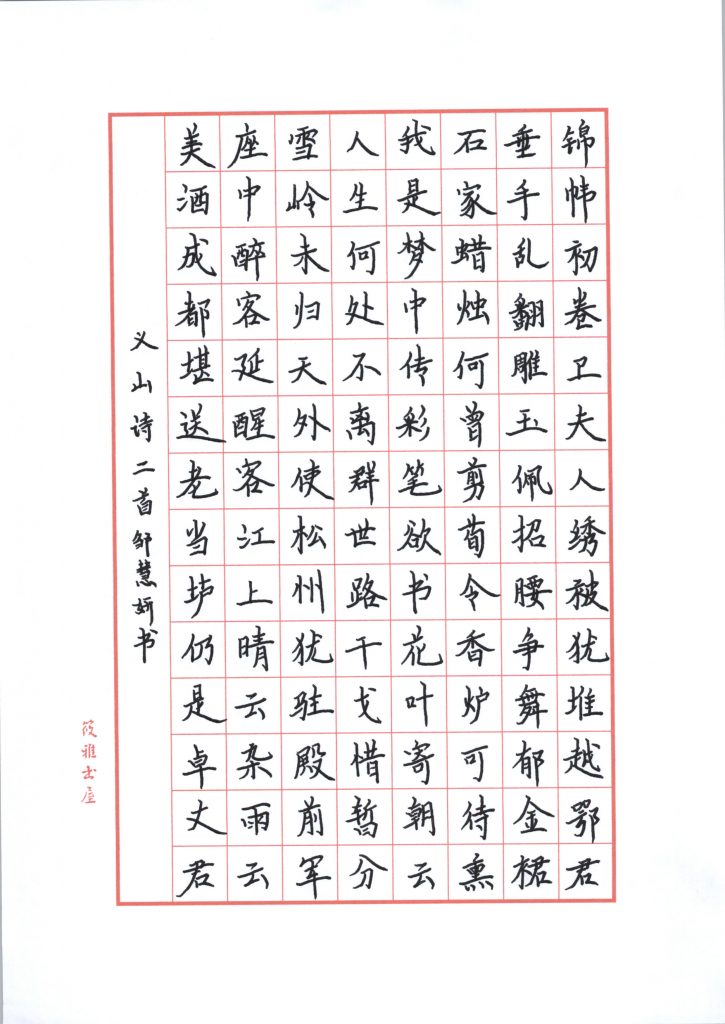 锦帏初卷卫夫人绣被犹堆越鄂君
垂手乱翻雕玉佩招腰争舞郁金裙
石家蜡烛何曾剪荀令香炉可待熏
我是梦中传彩笔欲书花叶寄朝云
人生何处不离群世路干戈惜暂分
雪岭未归天外使松州犹驻殿前军
座中醉客延醒客江上晴云杂雨云
美酒成都堪送老当垆仍是卓文君
义山诗二首邹慧妍书
筱雅书屋